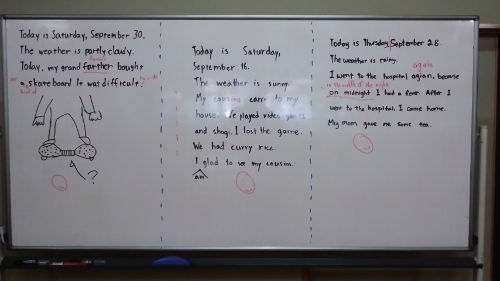 Today is Saturday, September 30.
The weather is partly cloudy.
Today, my grand farther bought
a skate board It was difficult.
?
Today is Saturday,
September 16.
The weather is sunny.
My cousins came to my
house. We played video games
and shogi. I lost the game.
We had curry rice.
I glad to see my cousin.
am
Today is Thursday, September 28.
The weather is rainy.
again
I went to the hospital agian, because
in the middle of the night
on midnight I had a fever. After I
went to the hospital, I came home.
My mom gave me some tea.